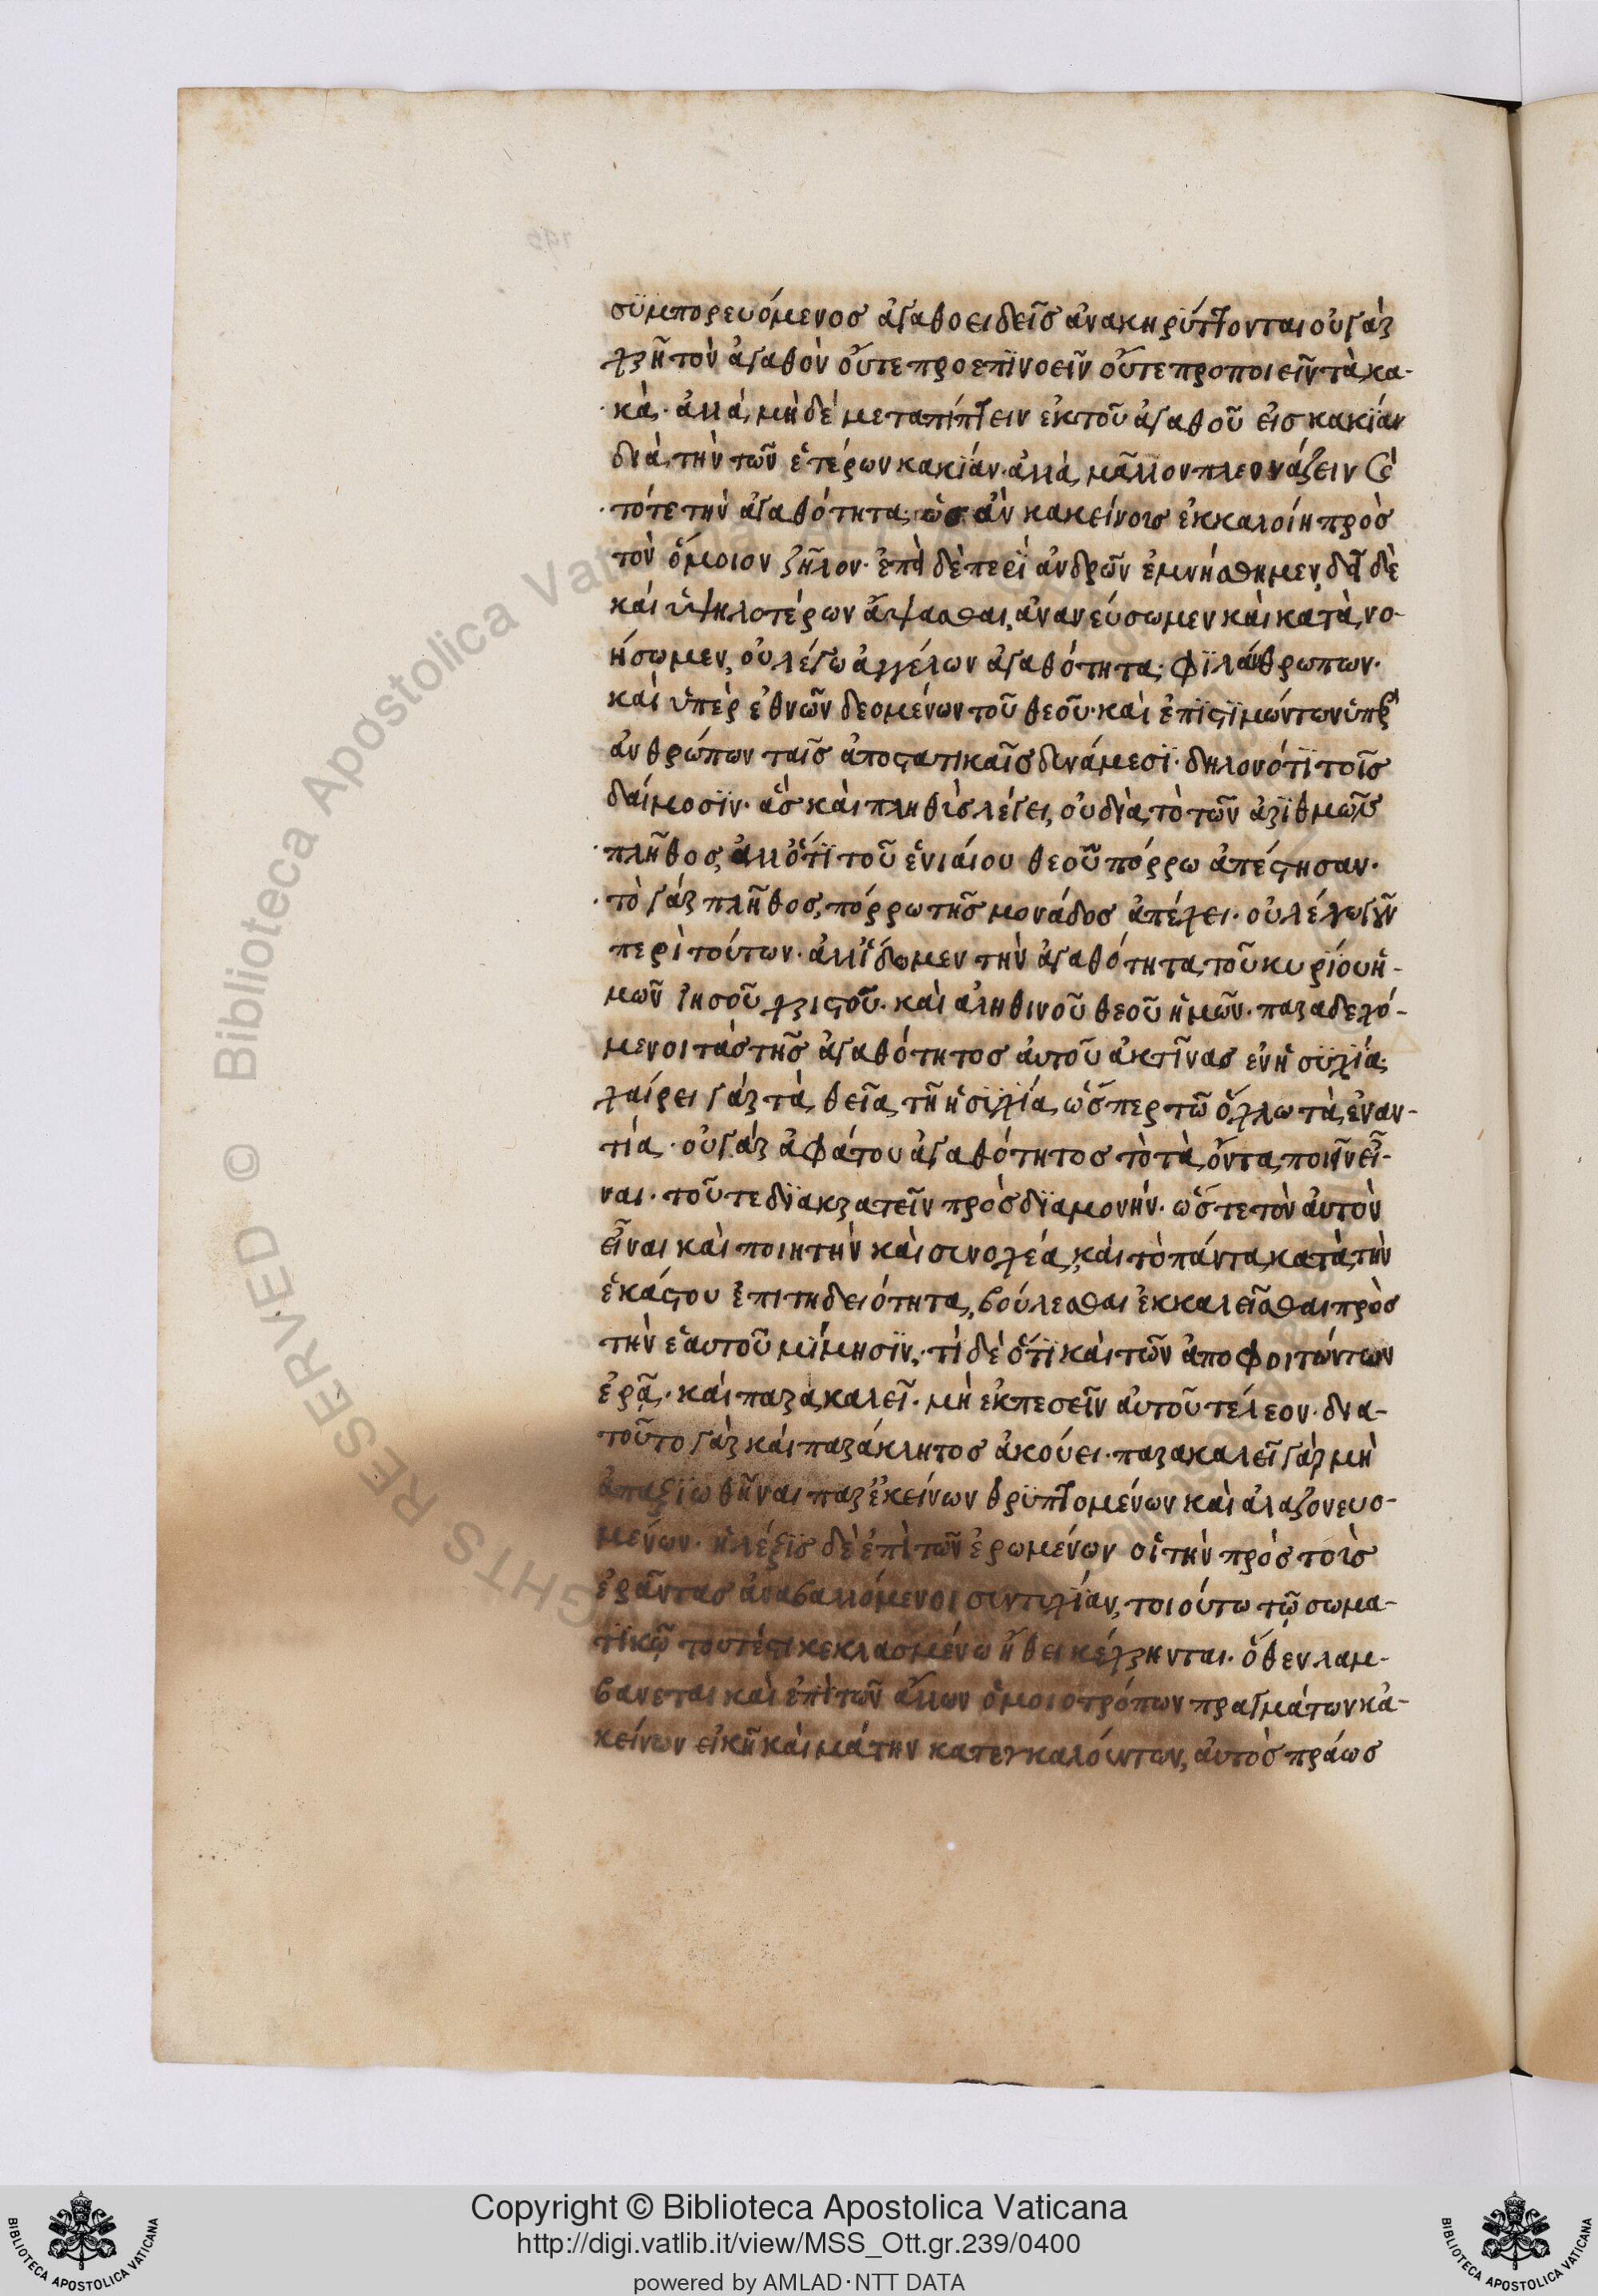 συμπορευόμενος ἀγαθοειδεῖς ἀνακηρύττονται οὐ γὰρ
χρὴ τὸν ἀγαθὸν οὔτε προεπινοεῖν οὔτε προποιεῖν τὰ κα-
κὰ· ἀλλὰ μὴ δὲ μεταπίπτειν ἐκ τοῦ ἀγαθοῦ εἰς κακίαν
διὰ τὴν τῶν ἑτέρων κακίαν· ἀλλὰ μᾶλλον πλεονάζειν καὶ
τότε τὴν ἀγαθότητα· ὡς ἂν κακείνοις ἐκκαλοίη πρὸς
τὸν ὅμοιον ζῆλον· ἐπεὶ δὲ περὶ ἀνδρῶν ἐμνήσθημεν, δεῖ δὲ
καὶ ὑψηλοτέρων ἅψασθαι, ἀνανεύσωμεν καὶ κατὰ νο-
ήσωμεν, οὐ λέγω ἀγγέλων ἀγαθότητα· φιλάνθρωπων·
καὶ ὑπὲρ ἐθνῶν δεομένων τοῦ θεοῦ· καὶ ἐπιτιμώντων ὑπὲρ
ἀνθρώπων ταῖς ἀποστατικαῖς δυνάμεσι· δηλονότι τοῖς
δαίμοσιν· ἃς καὶ πληθὺς λέγει, οὐ διὰ τὸ τῶν ἀριθμῶν
πλῆθος, ἀλλ' ὅτι τοῦ ἑνιαίου θεοῦ πόρρω ἀπέστησαν·
τὸ γὰρ πλῆθος, πόρρω τῆς μονάδος ἀπέχει· οὐ λέγω γοῦν
περὶ τούτων· ἀλλ' ἴδωμεν τὴν ἀγαθότητα τοῦ κυρίου ἡ-
μῶν Ἰησοῦ χριστοῦ· καὶ ἀληθινοῦ θεοῦ ἡμῶν· παραδεχό-
μενοι τὰς τῆς ἀγαθότητος αὐτοῦ ἀκτῖνας ἐν ἡσυχία·
χαίρει γὰρ τὰ θεῖα τῆ ἡσυχία, ὥσπερ τῶ ὄχλω τὰ ἐναν-
τία· οὐ γὰρ ἀφάτου ἀγαθότητος τὸ τὰ ὄντα ποιῆν εἶ-
ναι· τοῦ τε διακρατεῖν πρὸς διαμονήν· ὥστε τὸν αὐτὸν
εἶναι καὶ ποιητὴν καὶ συνοχέα, καὶ τὸ πάντα κατὰ τὴν
ἑκάστου ἐπιτηδειότητα, βούλεσθαι ἐκκαλεῖσθαι πρὸς
τὴν ἑαυτοῦ μίμησιν· τί δὲ ὅτι καὶ τῶν ἀποφοιτώντων
ἐρᾷ· καὶ παρακαλεῖ· μὴ ἐκπεσεῖν αὐτοῦ τέλεον· δια-
τοῦτο γὰρ καὶ παράκλητος ἀκούει· παρακαλεῖ γὰρ μὴ
ἀπαξιωθῆναι παρ' ἐκείνων θρυπτομένων καὶ ἀλαζονευο-
μένων· ἡ λέξις δὲ ἐπὶ τῶν ἐρωμένων οἱ τὴν πρὸς τοὺς
ἐρῶντας ἀναβαλλόμενοι συντυχίαν, τοιούτω τῷ σωμα-
τικῷ τουτέστι κεκλασμένω ἤθει κέχρηνται· ὅθεν λαμ-
βανεται καὶ ἐπὶ τῶν ἄλλων ὁμοιοτρόπων πραγμάτων κἀ-
κείνων εἰκῆ καὶ μάτην κατεγκαλούντων, αὐτὸς πράως
Copyright © Biblioteca Apostolica Vaticana
http://digi.vatlib.it/view/MSS_Ott.gr.239/0400
powered by AMLAD·NTT DATA